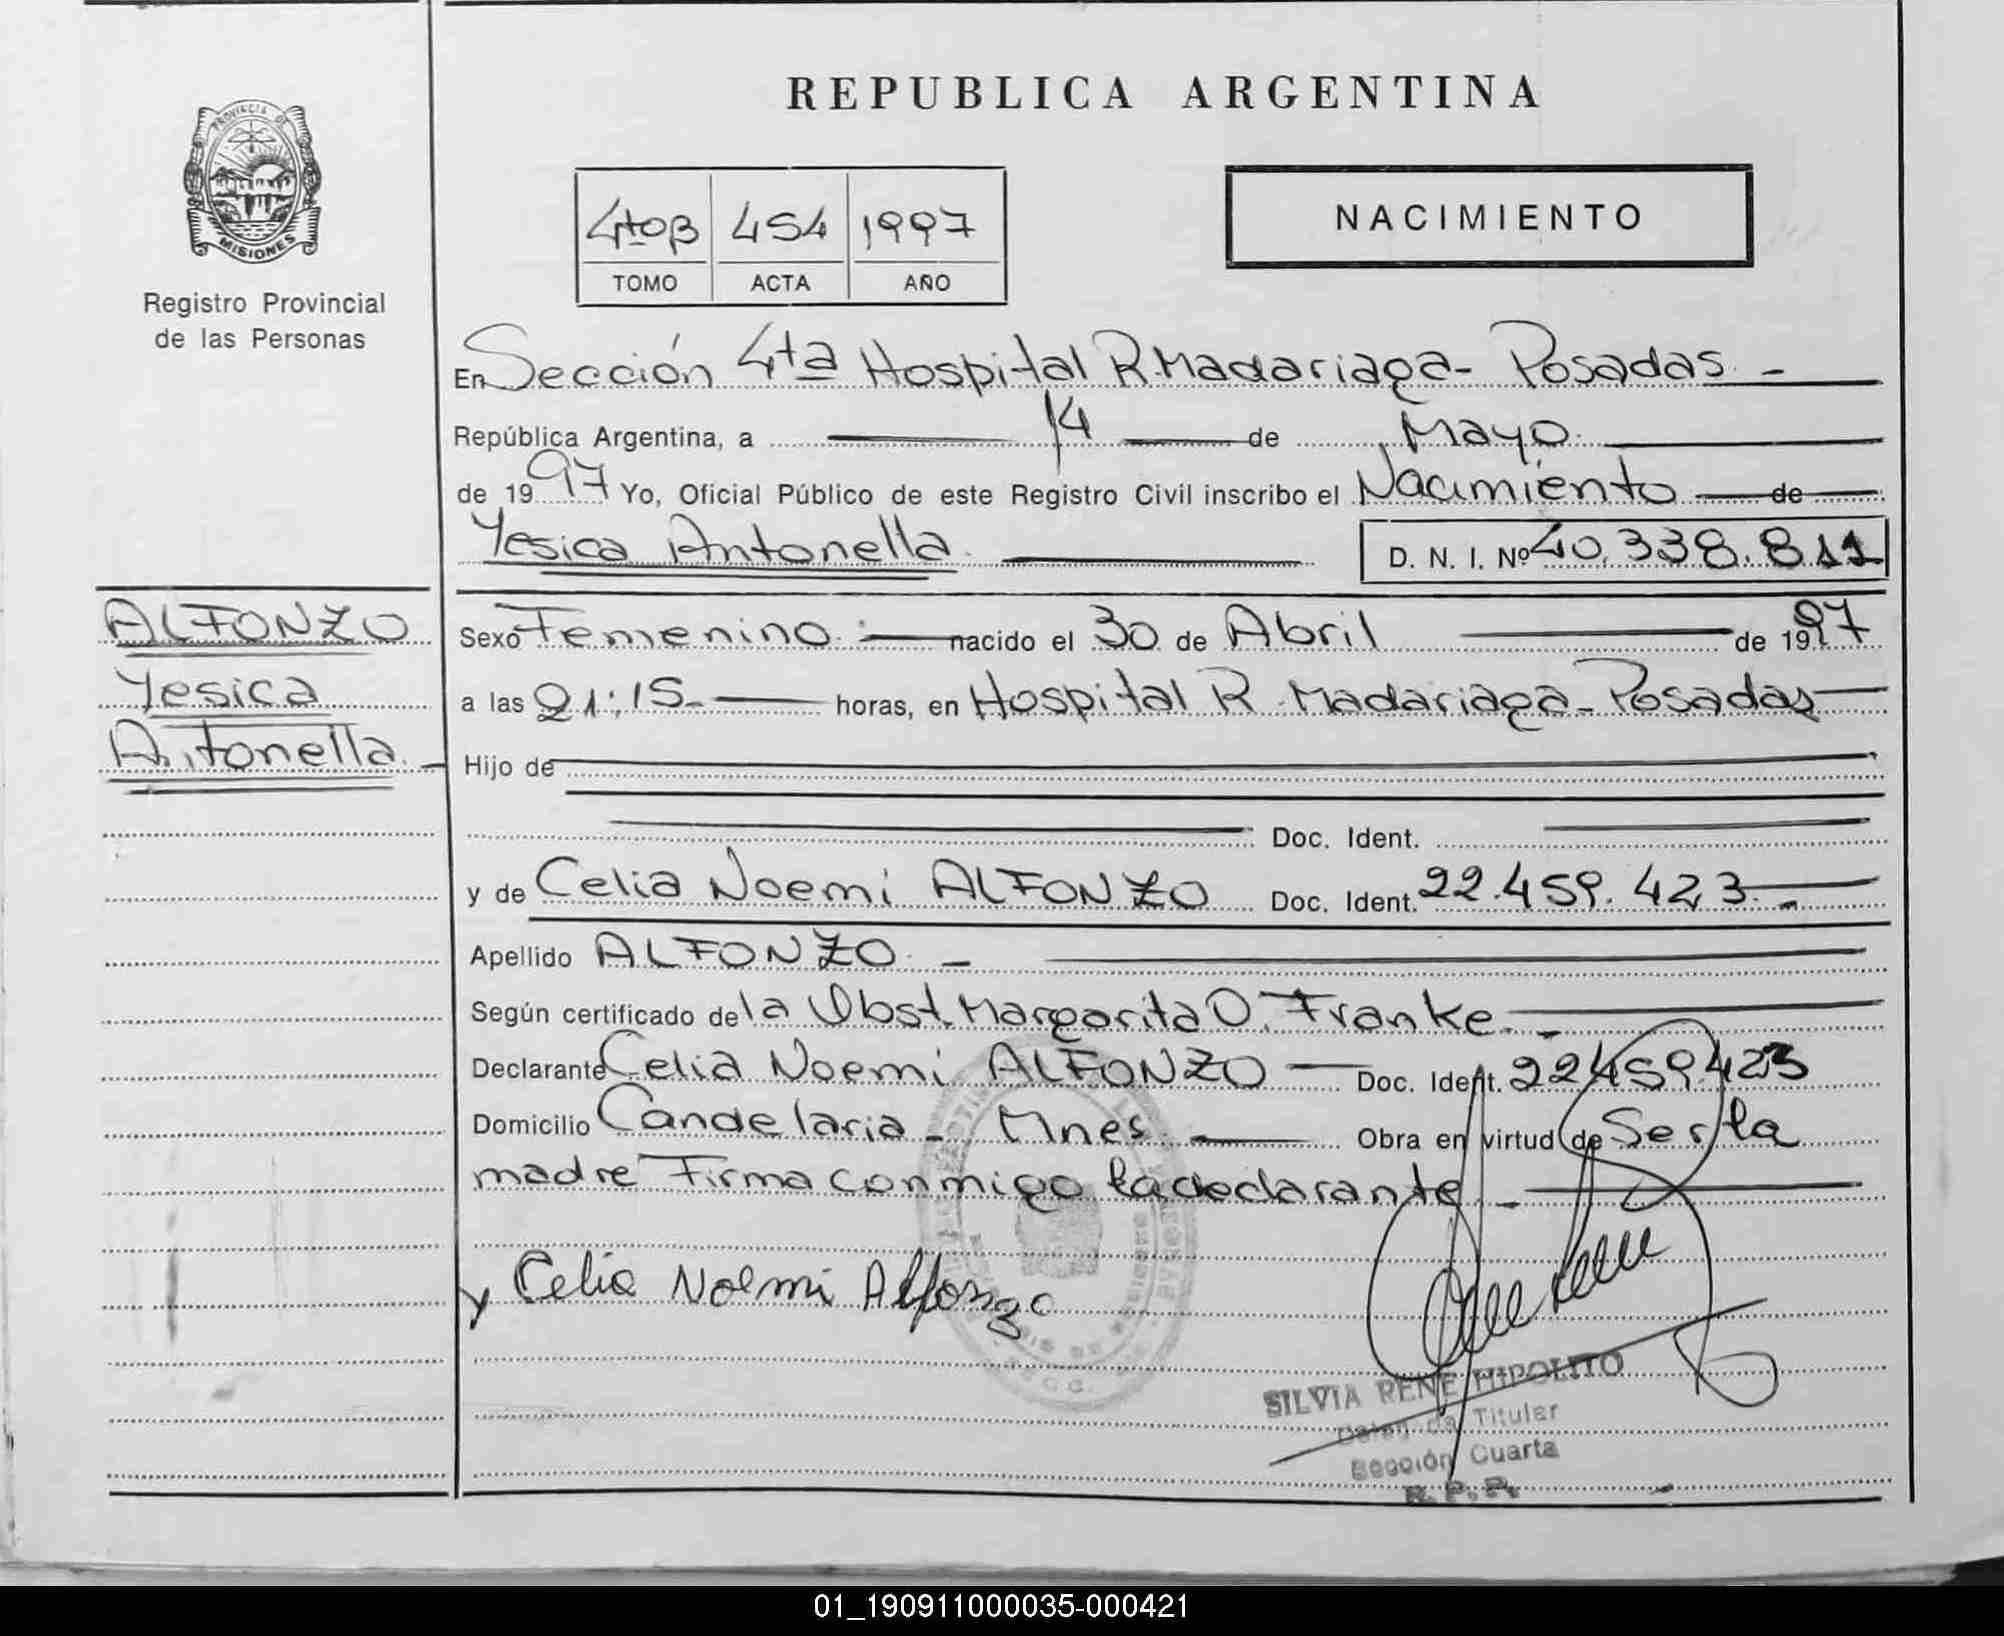 REPUBLICA ARGENTINA
PROVINCIA DE
MISIONES
Registro Provincial
de las Personas
4toB 454 1997
TOMO ACTA AÑO
NACIMIENTO
En Sección 4ta Hospital R. Madariaga - Posadas. -
República Argentina, a 14 de Mayo.
de 1997 Yo, Oficial Público de este Registro Civil inscribo el Nacimiento de
Yesica Antonella. D. N. I. Nº 40.338.811
ALFONZO
Yesica
Antonella. -
Sexo Femenino. - nacido el 30 de Abril de 1997
a las 21:15 - horas, en Hospital R. Madariaga - Posadas
Hijo de
Doc. Ident.
y de Celia Noemi ALFONZO Doc. Ident. 22.459.423. -
Apellido ALFONZO. -
Según certificado de la Obst. Margarita O. Franke. -
Declarante Celia Noemi ALFONZO - Doc. Ident. 22459423
Domicilio Candelaria - Mnes. Obra en virtud de Ser la
madre Firma conmigo la declarante -
y Celia Noemi Alfonzo
SILVIA RENE HIPOLITO
Titular
Sección Cuarta
R. P. P.
01_190911000035-000421